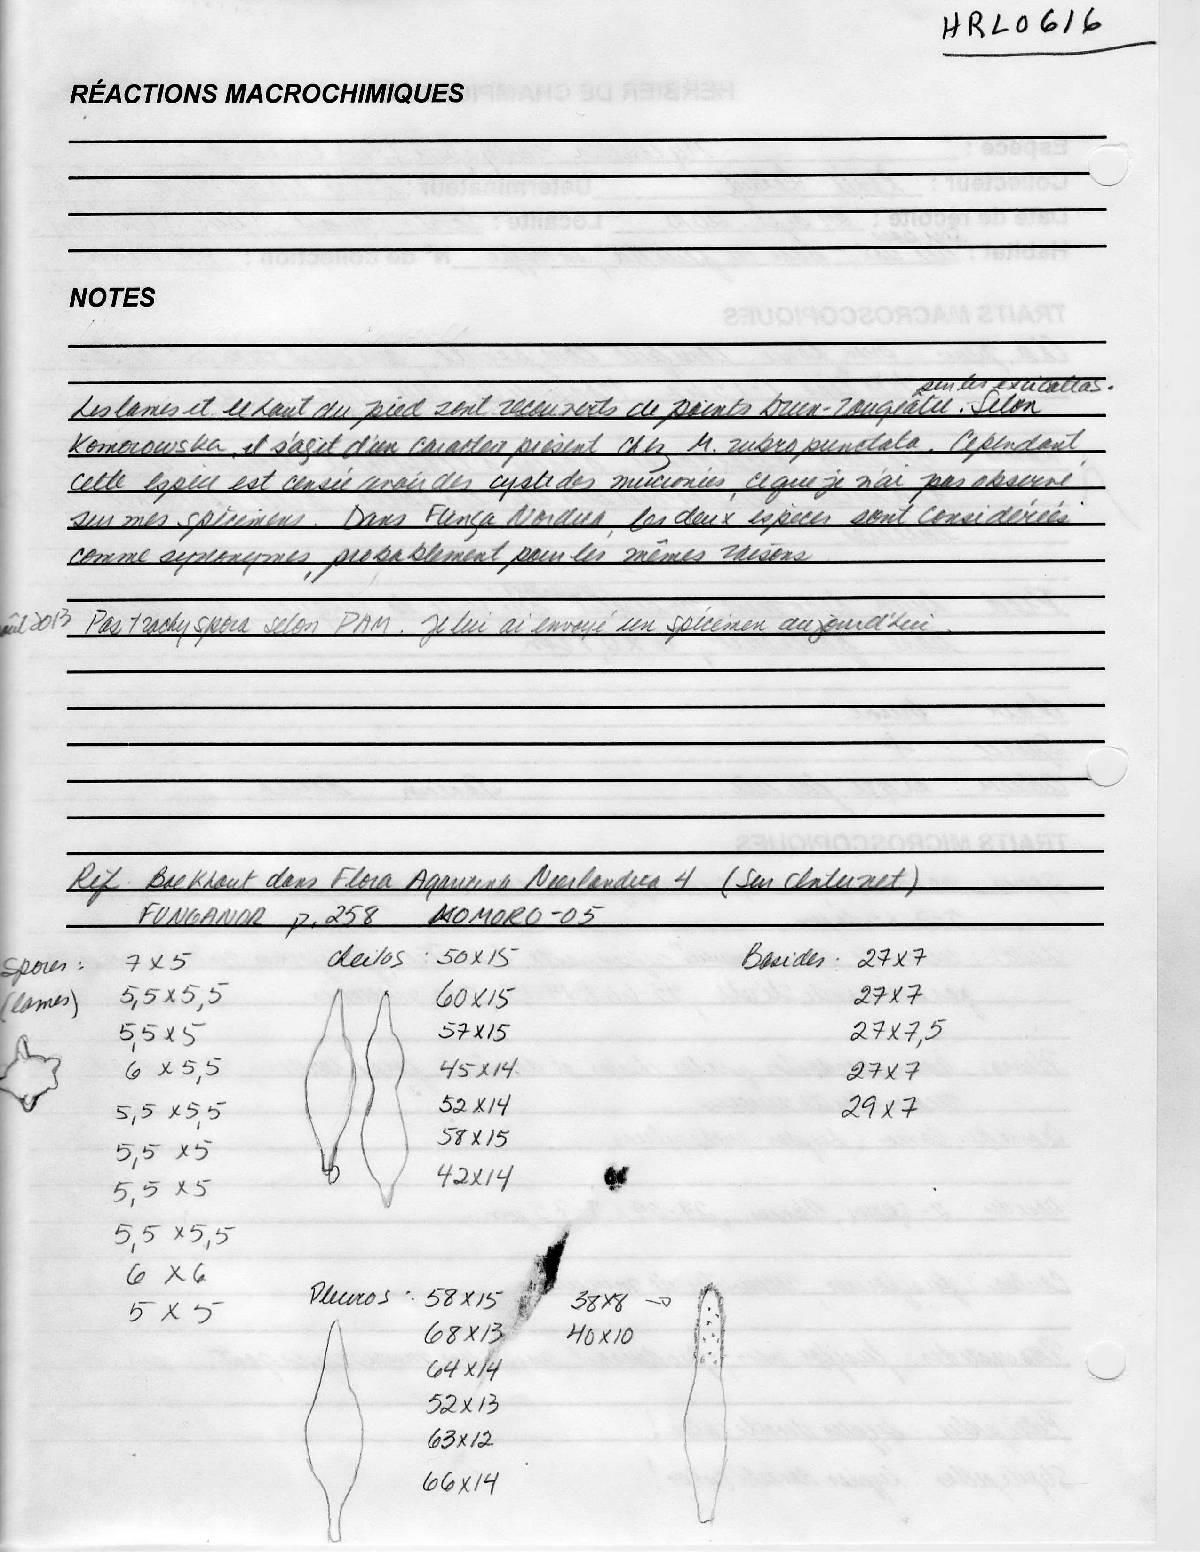 HRL0616
RÉACTIONS MACROCHIMIQUES
NOTES
sur les exsiccatas.
Les lames et le haut du pied sont recouverts de points brun-rougeâtre. Selon
Komorowska, il s'agit d'un caractère présent chez M. rubropunctata. Cependant
cette espèce est censée avoir des cystides mucronées, ce que je n'ai pas observé
sur mes spécimens. Dans Funga Nordica, les deux espèces sont considérées
comme synonymes, probablement pour les mêmes raisons
août 2013 Pas trachyspora selon PAM. Je lui ai envoyé un spécimen aujourd'hui.
Réf. Boekhout dans Flora Agaricina Neerlandica 4 (Sur Internet)
FUNGANOR p. 258 KOMORO-05
Spores : 7 x 5
(lames) 5,5 x 5,5
5,5 x 5
6 x 5,5
5,5 x 5,5
5,5 x 5
5,5 x 5
5,5 x 5,5
6 x 6
5 x 5
cheilos : 50x15
60x15
57x15
45x14
52x14
58x15
42x14
Basides : 27x7
27x7
27x7,5
27x7
29x7
Pleuros : 58x15
68x13
64x14
52x13
63x12
66x14
38x8 →
40x10